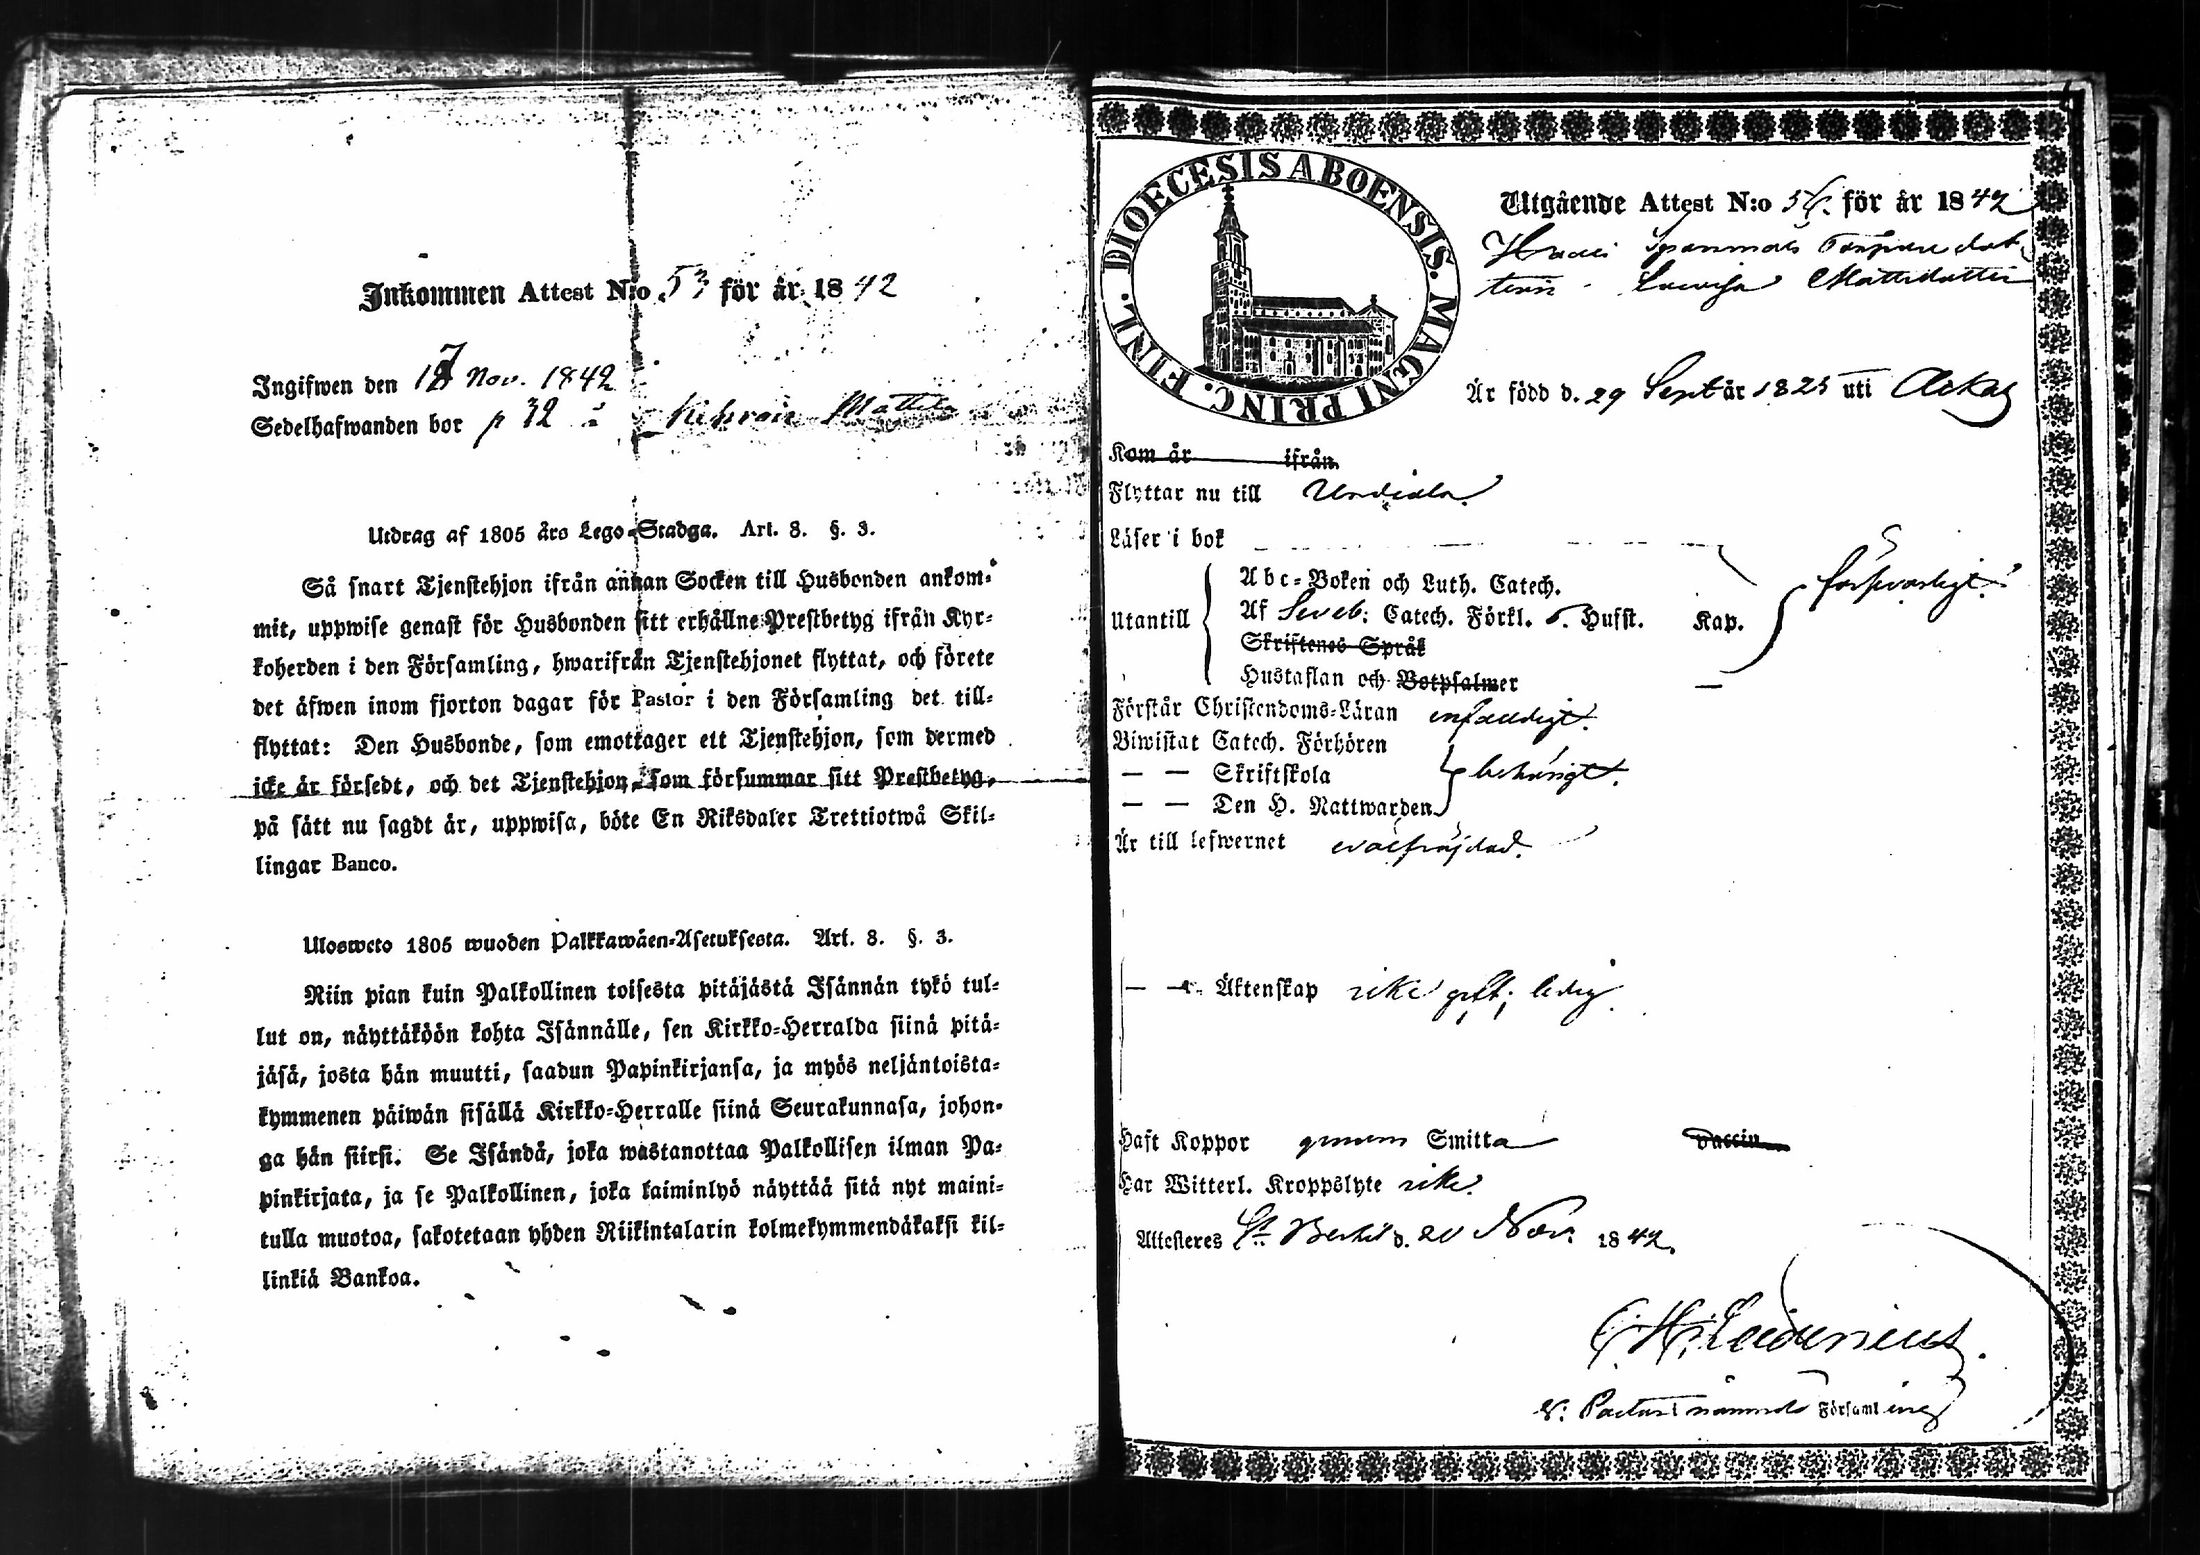 Inkommen Attest N:o 53 för år 1842
Ingifwen den 17 Nov. 1842
Sedelhafwanden bor p 32
Utdrag af 1805 års Lego-Stadga. Art. 8. §. 3.
Så snart Tjenstehjon ifrån annan Socken till Husbonden ankom-
mit, uppwise genast för Husbonden sitt erhållne Prestbetyg ifrån Kyr-
koherden i den Församling, hwarifrån Tjenstehjonet flyttat, och förete
det äfwen inom fjorton dagar för Pastor i den Församling det till-
flyttat: Den Husbonde, som emottager ett Tjenstehjon, som dermed
icke är försedt, och det Tjenstehjon, som försummar sitt Prestbetyg,
på sätt nu sagdt är, uppwisa, böte En Riksdaler Trettiotwå Skil-
lingar Banco.
Ulosweto 1805 wuoden Palkkawäen-Asetuksesta. Art. 8. §. 3.
Niin pian kuin Palkollinen toisesta pitäjästä Isännän tykö tul-
lut on, näyttäköön kohta Isännälle, sen Kirkko-Herralda siinä pitä-
jäsä, josta hän muutti, saadun Papinkirjansa, ja myös neljäntoista-
kymmenen päiwän sisällä Kirkko-Herralle siinä Seurakunnasa, johon-
ga hän siirsi. Se Isändä, joka wastanottaa Palkollisen ilman Pa-
pinkirjata, ja se Palkollinen, joka laiminlyö näyttää sitä nyt maini-
tulla muotoa, sakotetaan yhden Riikintalarin kolmekymmendäkaksi kil-
linkiä Bankoa.
DIOECESIS ABOENSIS. MAGNI PRINC. FINL.
Utgående Attest N:o 54. för år 1842
Spanmäls Torpare dot-
tern Lovisa Mattsdotter
Är född d. 29 Sept år 1825 uti Ackas
Kom år ifrån
Flyttar nu till Urdiala
Läser i bok
Abc-Boken och Luth. Catech.
försvarligt.
Utantill Af Sveb: Catech. Förkl. 5. Husst. Kap.
Skriftenes Språk
Hustaflan och Botpsalmer
Förstår Christendoms-Läran enfaldigt.
Biwistat Catech. Förhören
— — Skriftskola behörigt.
— — Den H. Nattwarden
Är till lefwernet wälfräjdad.
— — Äktenskap icke gift; ledig
Haft Koppor genom Smitta Vaccin
Har Witterl. Kroppslyte icke.
Attesteres St Bertils d. 20 Nov. 1842.
v: Pastor i nämnde Församling